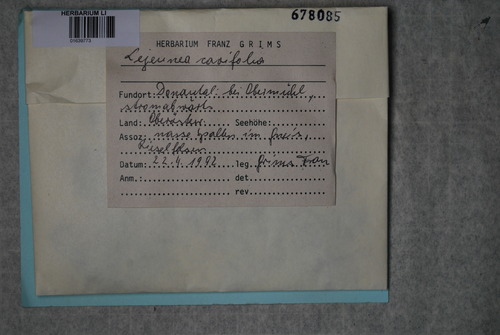 HERBARIUM LI
678085
HERBARIUM FRANZ GRIMS
Lejeunea cavifolia
Fundort: Donautal bei Obermühl,
stromabwärts
Land: Seehöhe:
Assoz: nasse Spalten im
Datum: 22.4.1992 leg. Grims Franz
Anm.: det.
rev.